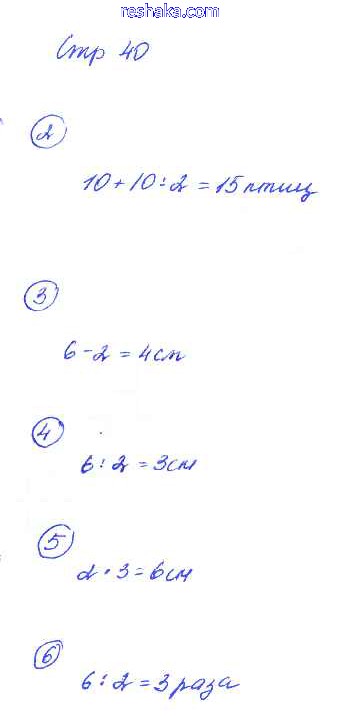 reshaka.com
Стр 40
2
10 + 10 : 2 = 15 птиц
3
6 - 2 = 4 см
4
6 : 2 = 3 см
5
2 · 3 = 6 см
6
6 : 2 = 3 раза